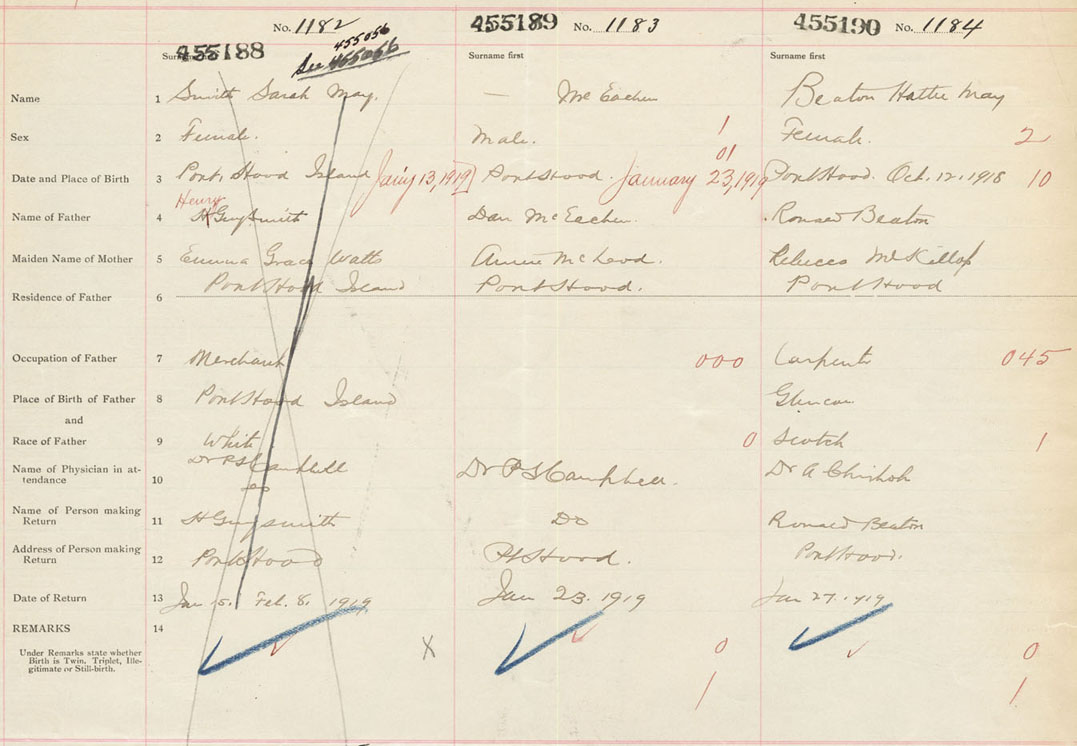 No. 1182 455189 No. 1183 455190 No. 1184
455188 See 455056 455056 Surname first Surname first
Name 1 Smith Sarah May. — McEachen Beaton Hattie May
Sex 2 Female. Male. 1 Female. 2
01
Date and Place of Birth 3 Port Hood Island Jan'y 13, 1919 Port Hood. January 23, 1919 Port Hood. Oct. 12. 1918 10
Henry
Name of Father 4 H Guy Smith Dan McEachen. Ronald Beaton
Maiden Name of Mother 5 Emma Grace Watts Annie McLeod. Rebecca McKillop
Residence of Father 6 Port Hood Island Port Hood. Port Hood
Occupation of Father 7 Merchant 000 Carpenter 045
Place of Birth of Father 8 Port Hood Island Glencoe
and
Race of Father 9 White 0 Scotch 1
Name of Physician in at-
tendance 10 Dr P S Campbell Dr P S Campbell. Dr A Chisholm
Name of Person making
Return 11 H Guy Smith Do Ronald Beaton
Address of Person making
Return 12 Port Hood Pt Hood. Port Hood.
Date of Return 13 Jan 15. Feb. 8. 1919 Jan 23. 1919 Jan 27. 1919
REMARKS 14
Under Remarks state whether
Birth is Twin, Triplet, Ille-
gitimate or Still-birth. X 0 0
1 1